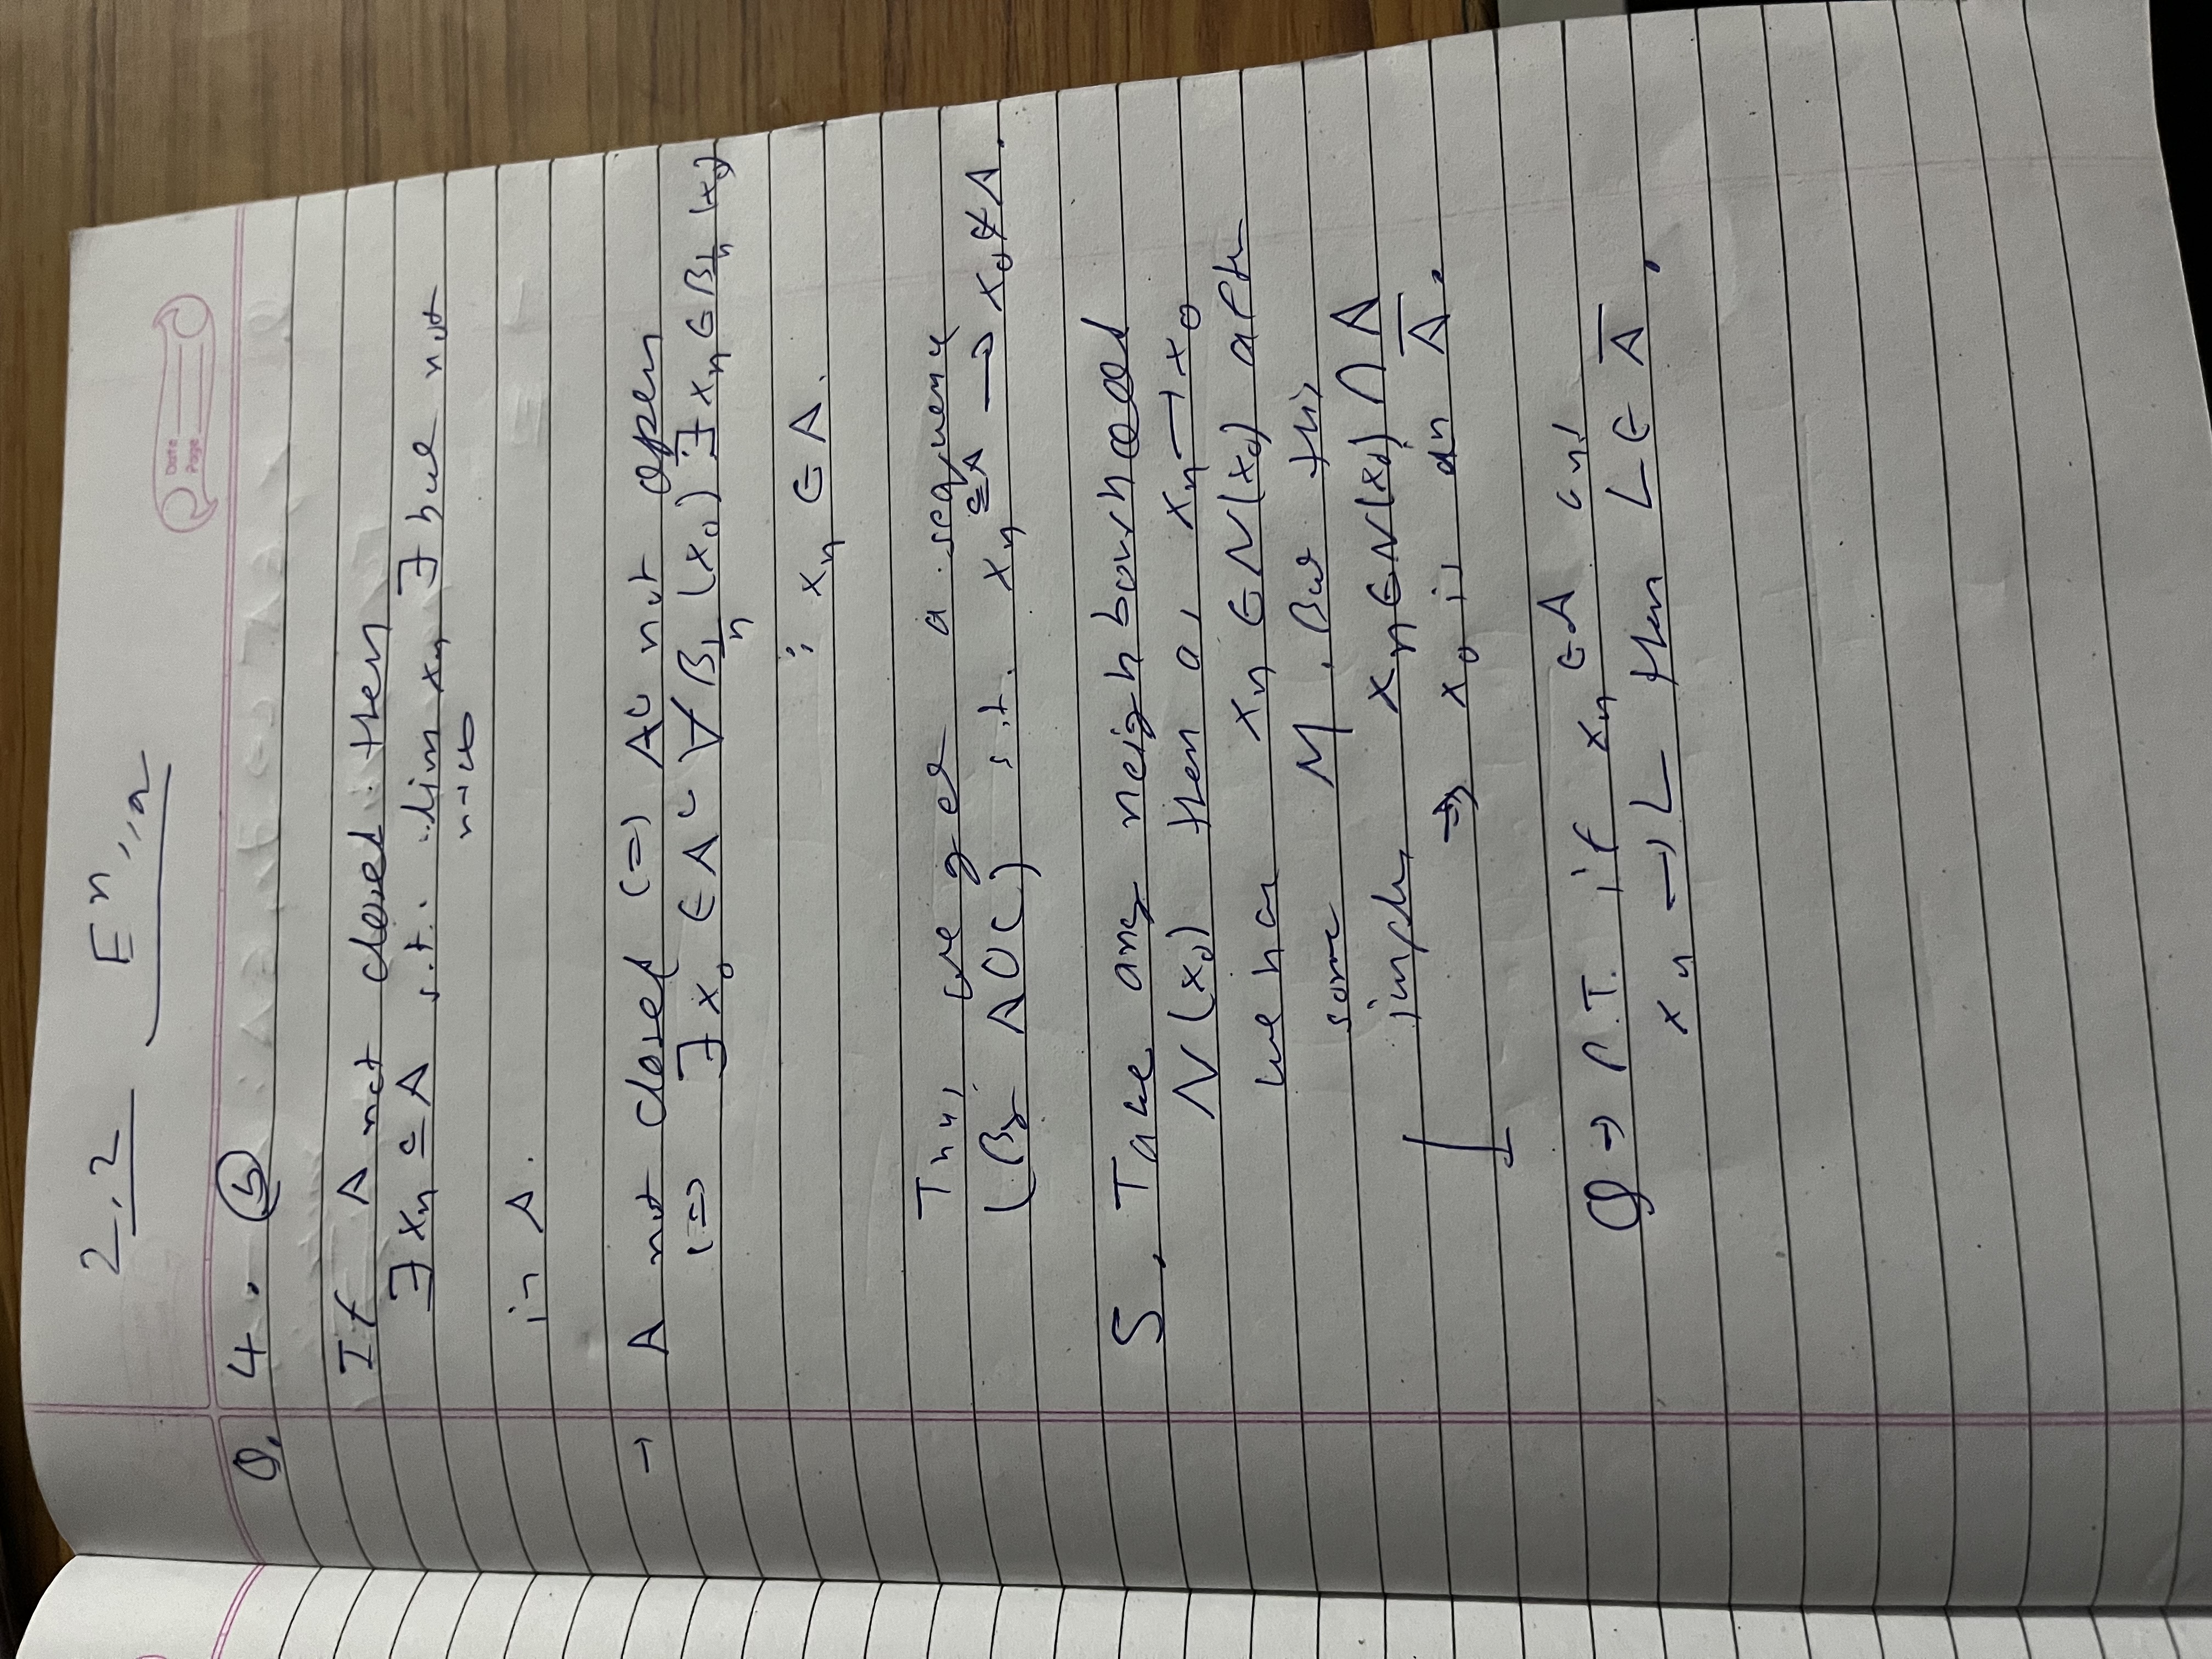 2.2 Eⁿ
Date
Page
Q. 4. (b)
If A not closed then
∃ xₙ ⊆ A s.t. lim xₙ ∃ but not
n→∞
in A.
→ A not closed (=) Aᶜ not open
(=) ∃ x₀ ∈ Aᶜ ∀ B_{1/n} (x₀) ∃ xₙ ∈ B_{1/n} (x₀)
; xₙ ∈ A.
Thus we get a sequence
(By AOC) s.t. xₙ ⊆ A → x₀ ∉ A.
5. Take any neighbourhood
N(x₀) then as xₙ → x₀
we have xₙ ∈ N(x₀) after
some M. But this
implies xₙ ∈ N(x₀) ∩ A
⇒ x₀ is in A̅.
Q → P.T. if xₙ ∈ A and
xₙ → L then L ∈ A̅.